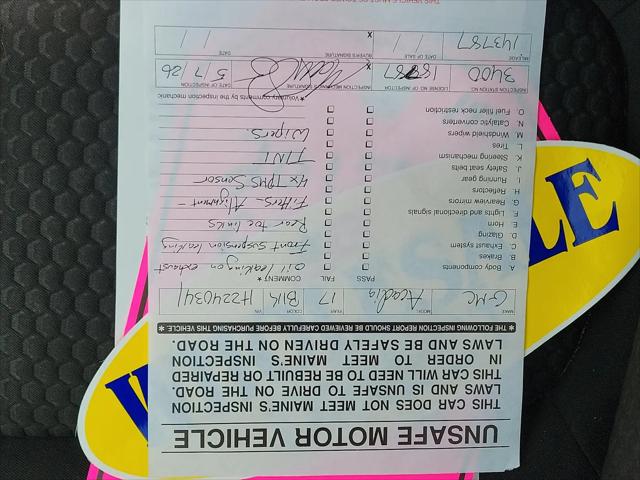 UNSAFE MOTOR VEHICLE
THIS CAR DOES NOT MEET MAINE'S INSPECTION
LAWS AND IS UNSAFE TO DRIVE ON THE ROAD.
THIS CAR WILL NEED TO BE REBUILT OR REPAIRED
IN ORDER TO MEET MAINE'S INSPECTION
LAWS AND BE SAFELY DRIVEN ON THE ROAD.
* THE FOLLOWING INSPECTION REPORT SHOULD BE REVIEWED CAREFULLY BEFORE PURCHASING THIS VEHICLE. *
MAKE GMC MODEL Acadia YEAR 17 COLOR Blk VIN H2240341
PASS FAIL COMMENT*
A. Body components oil leaking on exhaust
B. Brakes Front suspension leaking
C. Exhaust system
D. Glazing Rear toe links
E. Horn
F. Lights and directional signals Filters - Alignment -
G. Rearview mirrors
H. Reflectors 4x TPMS Sensor
I. Running gear
J. Safety seat belts TINT
K. Steering mechanism
L. Tires Wipers.
M. Windshield wipers
N. Catalytic converters
O. Fuel filler neck restriction
*Voluntary comments by the inspection mechanic
3400 5/7/26
INSPECTION STATION NO. LICENSE NO. OF INSPECTION INSPECTION MECHANIC SIGNATURE DATE OF INSPECTION
143787 X / /
MILEAGE DATE OF SALE BUYER'S SIGNATURE DATE
LE